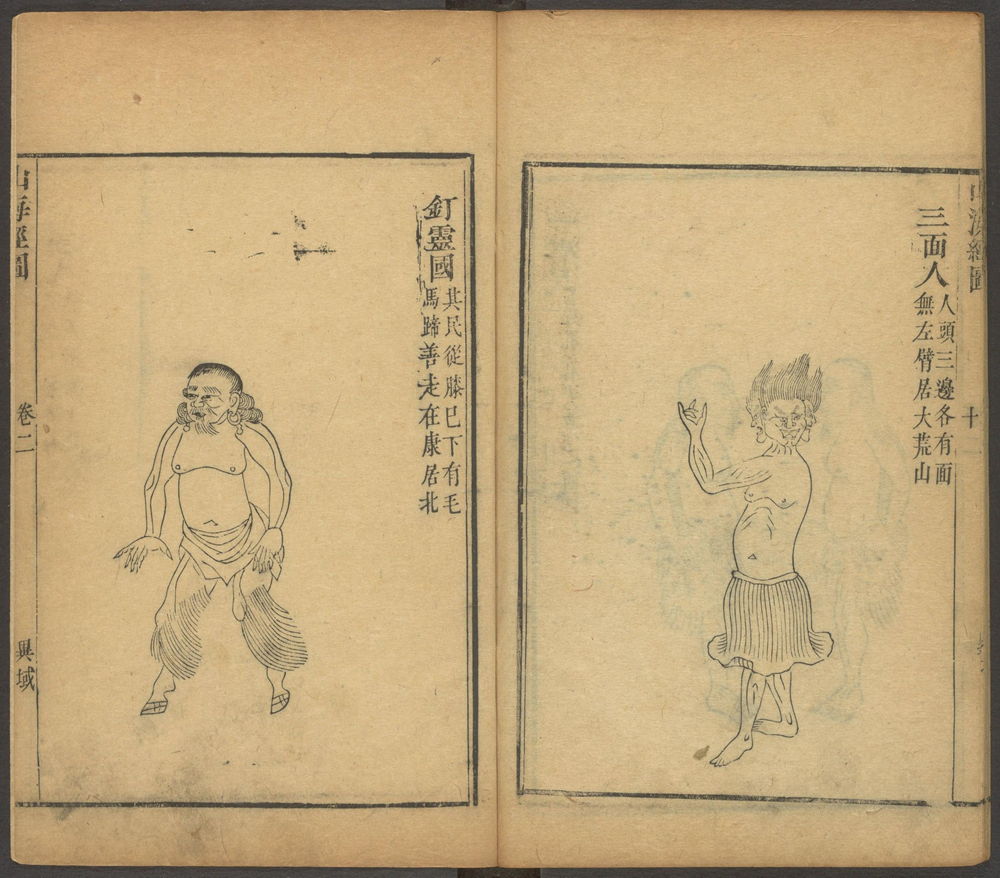 山海經圖
十一
三面人
人頭三邊各有面
無左臂居大荒山
釘靈國
其民從膝巳下有毛
馬蹄善走在康居北
山海經圖
卷二
異域